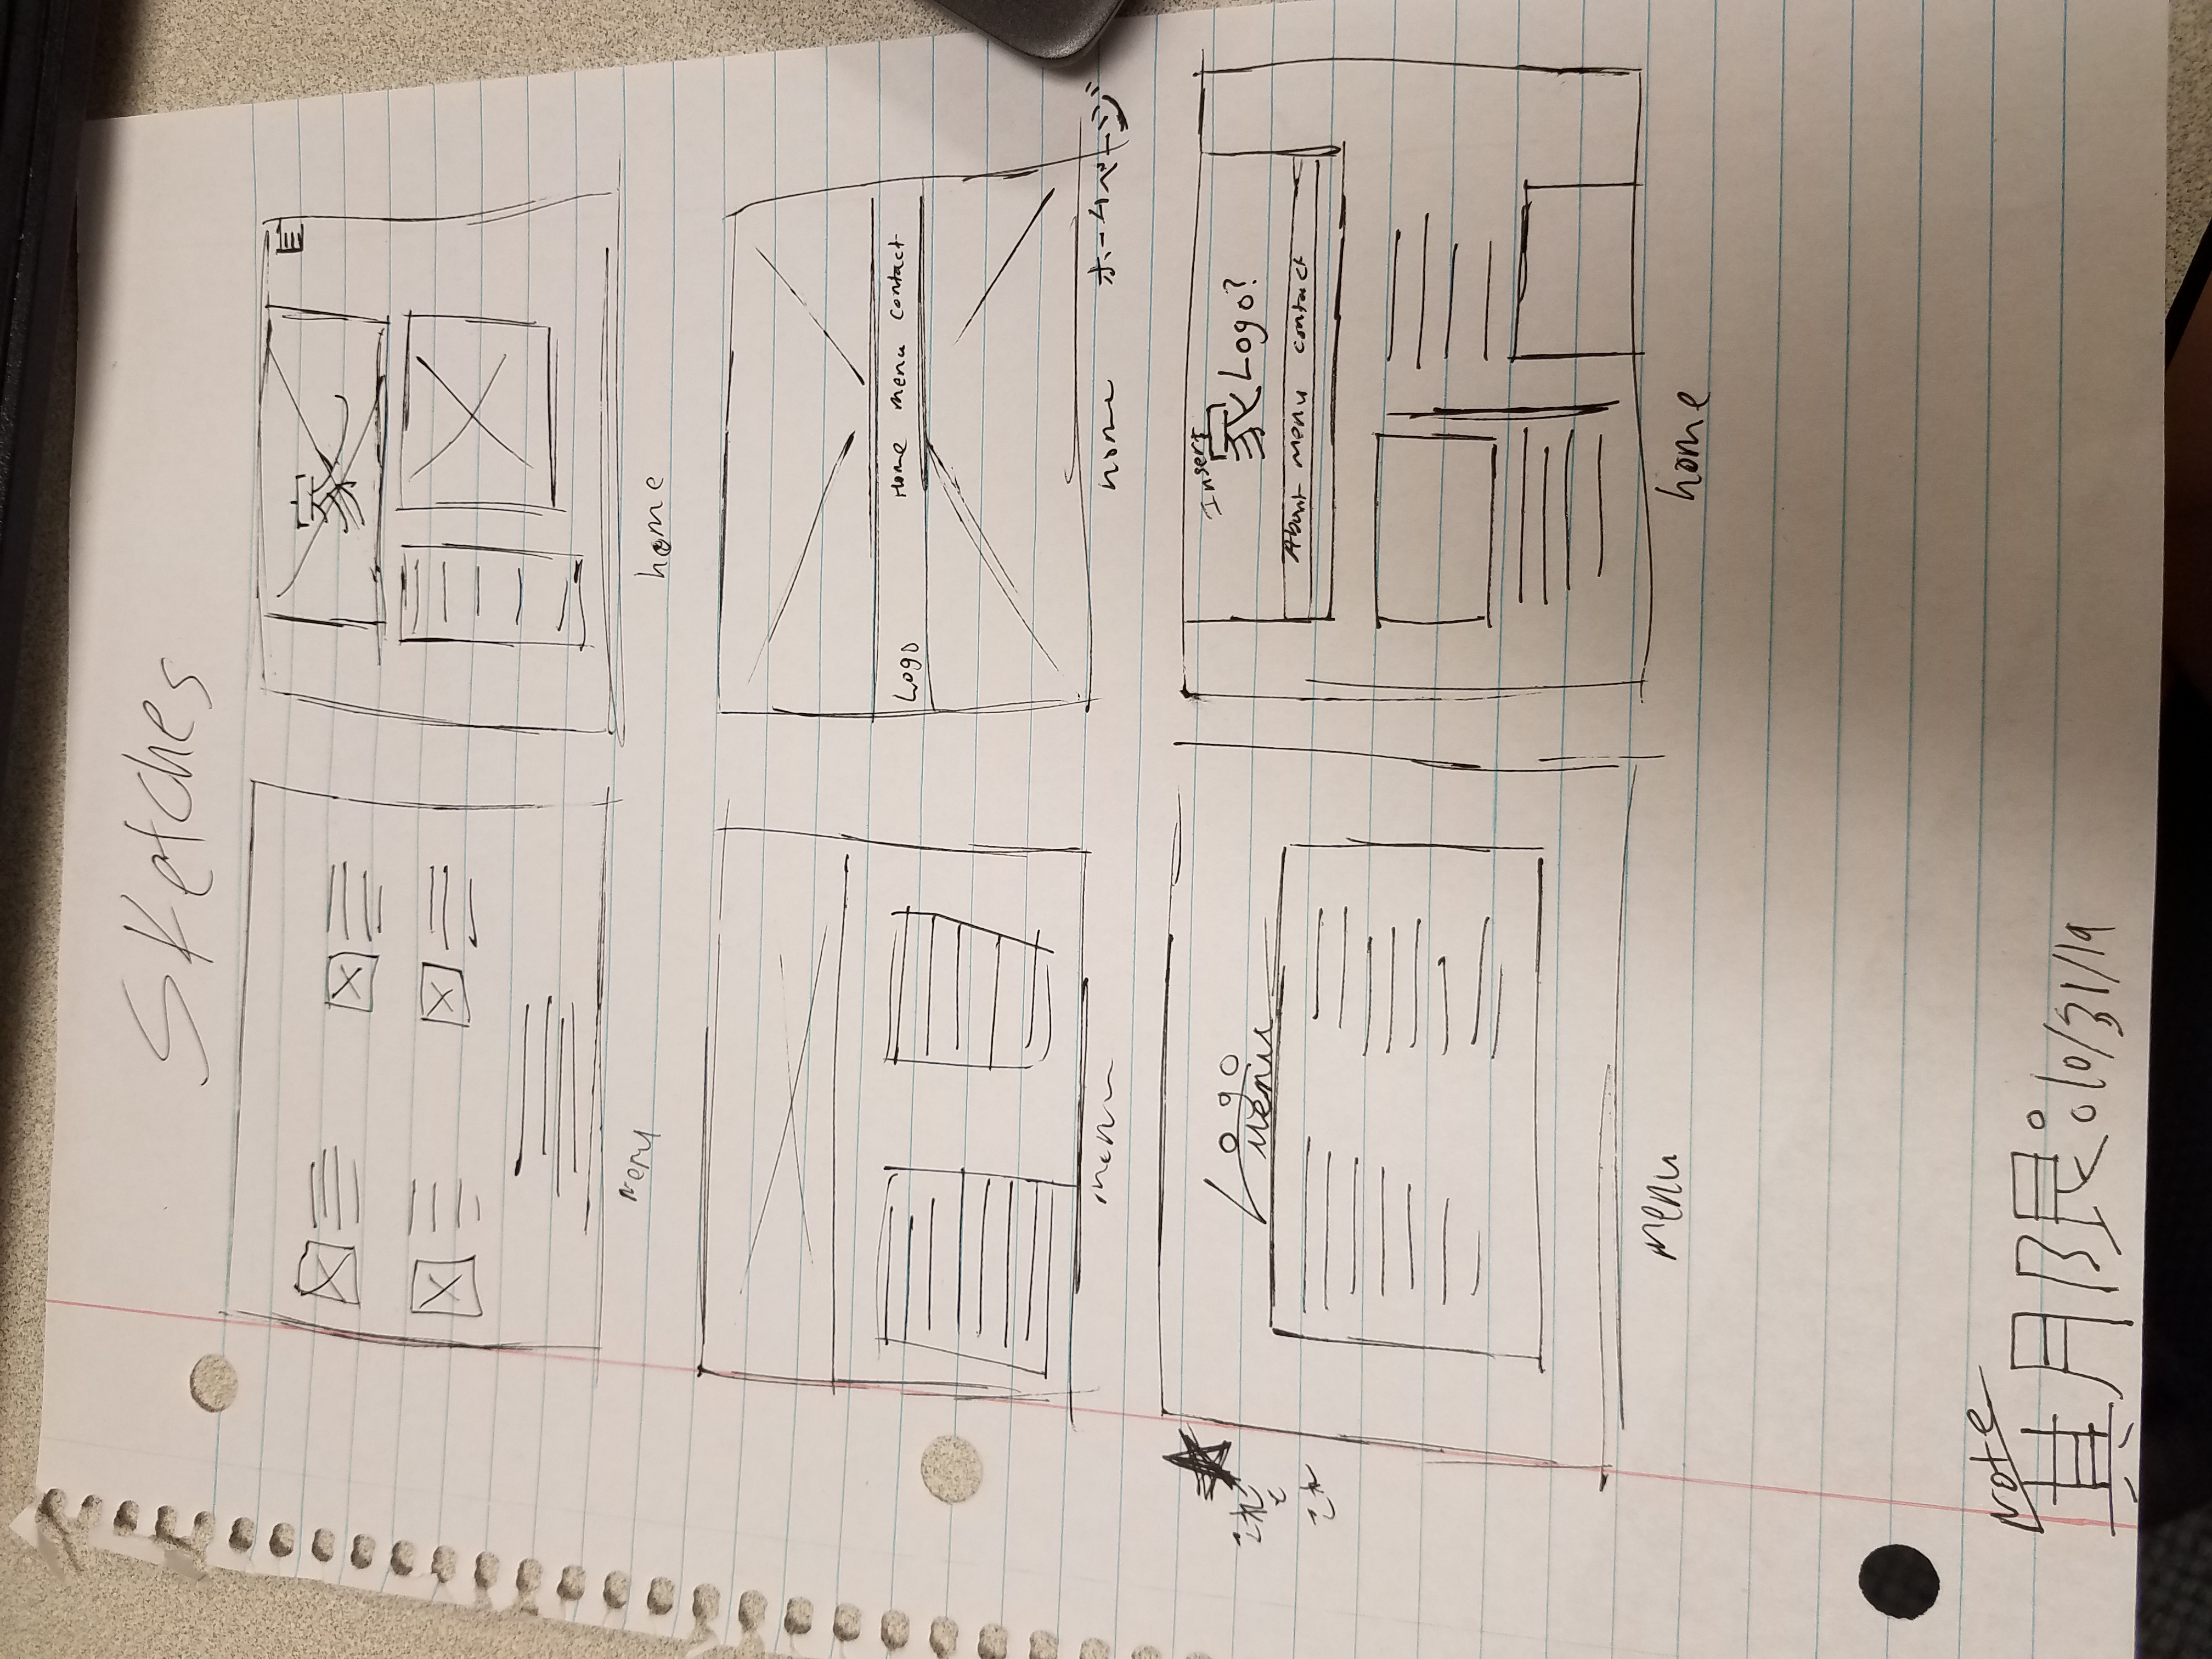 Sketches
家
menu
home
Logo Home menu contact
menu
home ホームページ
これ
と
これ
Logo
menu
Insert
家 Logo?
About menu contact
menu
home
Note
期限:10/31/19